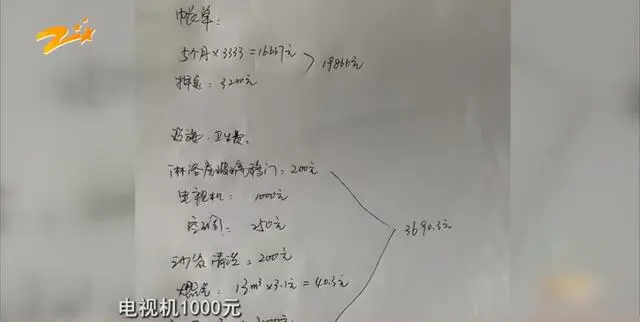 帐单:
5个月×3333=16667元
19866元
押金: 3200元
卫生费。
淋浴房玻璃移门: 200元
电视机: 1000元
空调: 250元
3690.3元
沙发清洗: 200元
燃气: 13m³×3.1元=40.3元
电视机1000元